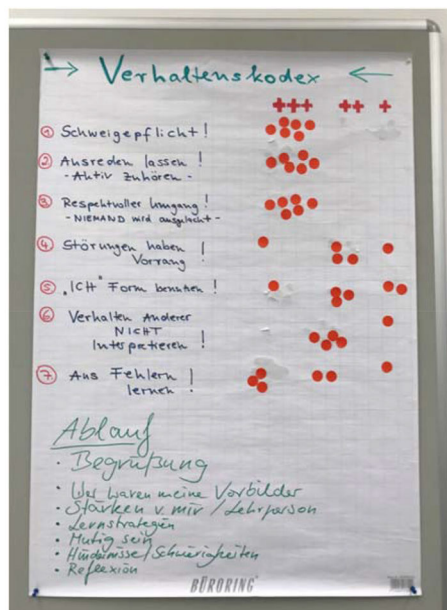 → Verhaltenskodex ←
+++ ++ +
① Schweigepflicht!
② Ausreden lassen!
- Aktiv zuhören -
③ Respektvoller Umgang!
- NIEMAND wird ausgelacht -
④ Störungen haben
Vorrang!
⑤ "ICH" Form benutzen!
⑥ Verhalten Anderer
NICHT
Interpretieren!
⑦ Aus Fehlern
lernen!
Ablauf
· Begrüßung
· Wer waren meine Vorbilder
· Stärken v. mir / Lehrperson
· Lernstrategien
· Mutig sein
· Hindernisse/Schwierigkeiten
· Reflexion
BÜRORING